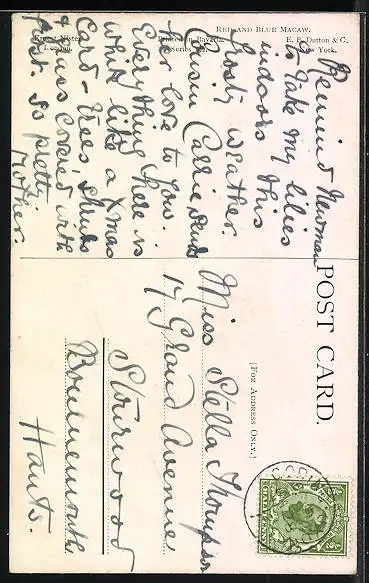 RED AND BLUE MACAW.
Ernest Nister
London.
Printed in Bavaria.
Series
E. P. Dutton & C.
New York.
Remind Newman
to take my lilies
indoors this
frosty weather.
Cousin Carrie sends
her love to you.
Everything here is
white like a Xmas
Card - trees shrubs
& grass covered with
frost. So pretty
Mother
POST CARD.
(FOR ADDRESS ONLY.)
Miss Stella Thompson
17 Grand Avenue
Stourwood
Bournemouth
Hants.
HALF PENNY